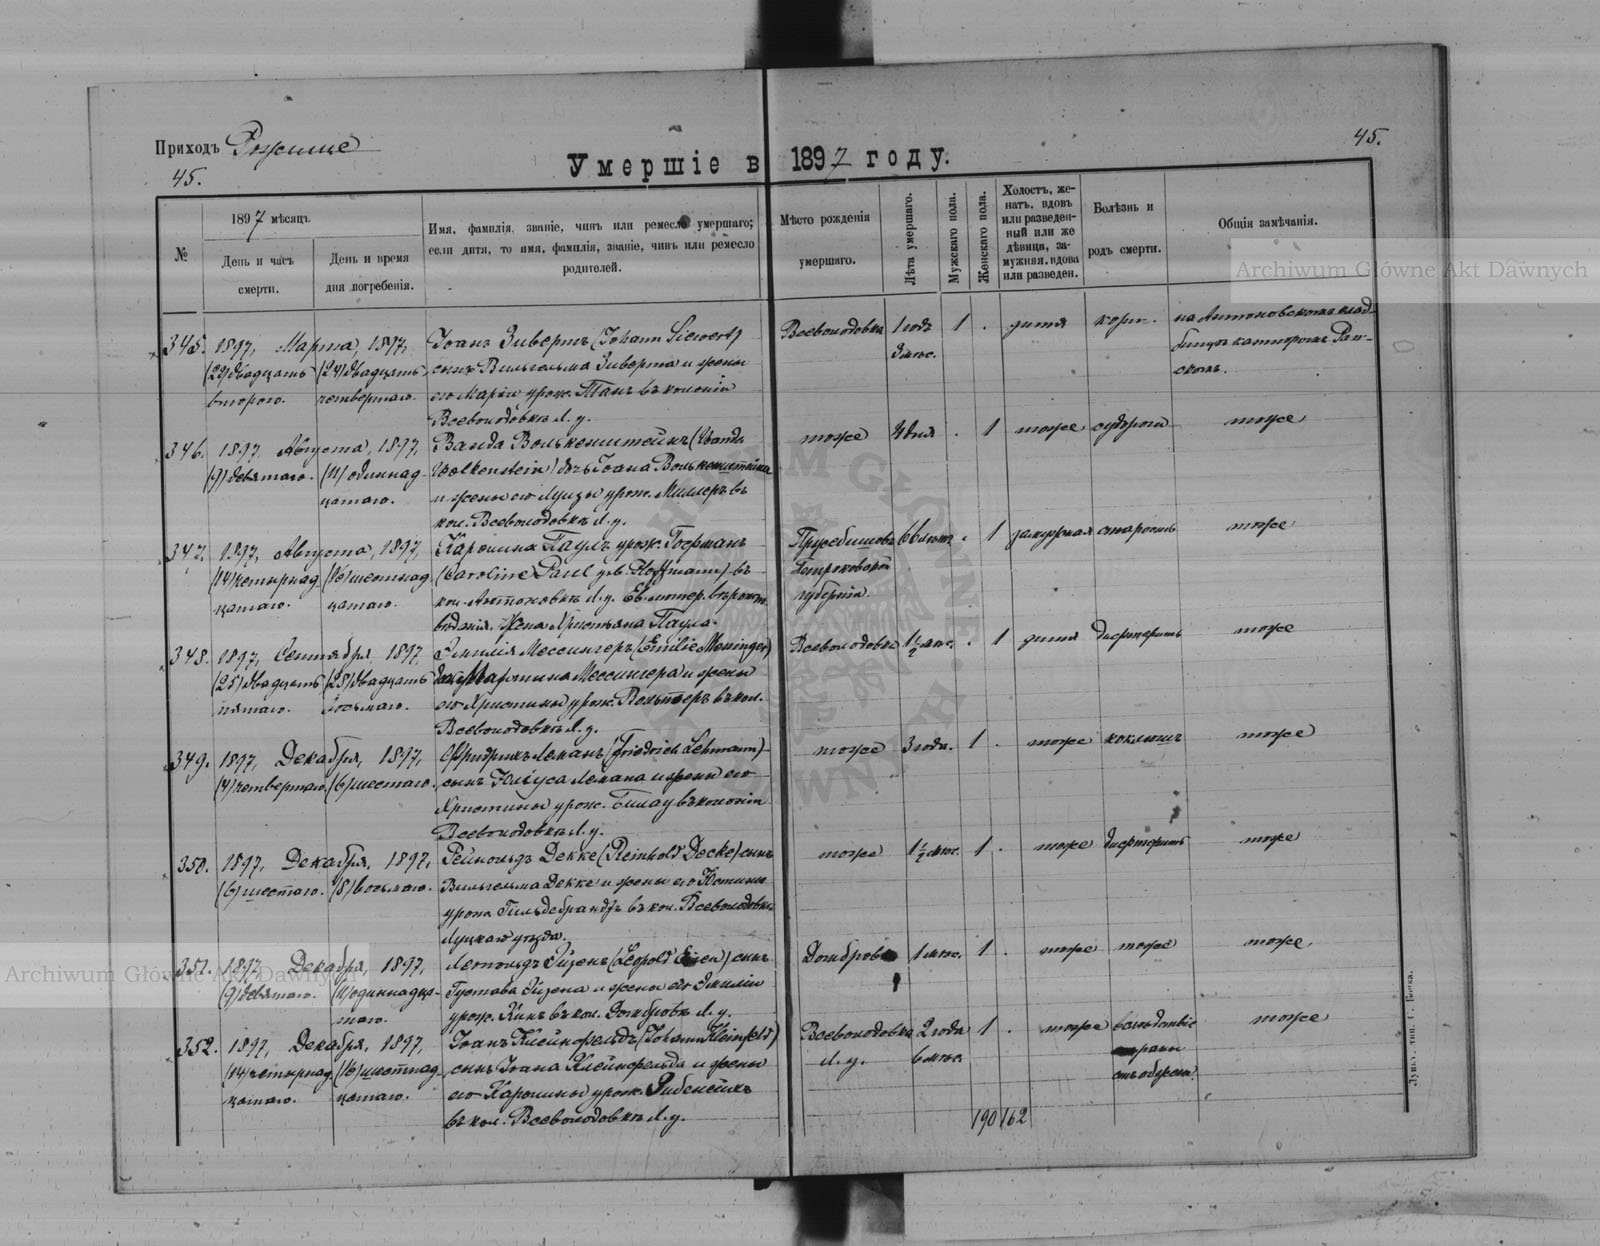 Приходъ Рожище
45.
45.
Умершіе въ 1897 году.
№
1897 мѣсяцъ
День и часъ смерти.
День и время дня погребенія.
Имя, фамилія, званіе, чинъ или ремесло умершаго;
если дитя, то имя, фамилія, званіе, чинъ или ремесло
родителей.
Мѣсто рожденія
умершаго.
Лѣта умершаго.
Мужскаго пола.
Женскаго пола.
Холостъ, же-
натъ, вдовъ
или разведен-
ный или же
дѣвица, за-
мужняя, вдова
или разведен.
Болѣзнь и
родъ смерти.
Общія замѣчанія.
Archiwum Główne Akt Dawnych
345. 1897, Марта, 1897,
(22) двадцать
второго.
(24) двадцать
четвертаго.
Іоанъ Зивертъ (Johann Siewert)
сынъ Вильгельма Зиверта и жены
его Маріи урож. Танъ въ колоніи
Всеволодовкѣ Л. у.
Всеволодовка 1 годъ 1 . дитя кори.
3 мѣс.
на Антоновскомъ клад-
346. 1897, Августа, 1897,
(9) девятаго.
(11) одиннад-
цатаго.
Ванда Волькенштейнъ (Wanda
Wolkenstein) дочь Іоана Волькенштейна
и жены его Луизы урож. Миллеръ въ
кол. Всеволодовкѣ Л. у.
тоже 4 дня . 1 тоже судороги тоже
347. 1897, Августа, 1897,
(14) четырнад
цатаго.
(16) шестнад
цатаго.
Каролина Паулъ урож. Гофманъ
(Caroline Paul geb. Hoffmann) въ
кол. Антоновкѣ Л. у. Ев. лютер. вѣроисп
вѣданія. Жена Христьяна Паула.
Петроковской
губерніи.
66 лѣтъ . 1 замужняя старость тоже
348. 1897, Сентября, 1897,
(25) двадцать
пятаго.
(28) двадцать
восьмаго.
Эмилія Мессингеръ (Emilie Messinger)
дочь Мартина Мессингера и жены
его Христины урож. Вольтеръ въ кол.
Всеволодовкѣ Л. у.
Всеволодовка 1½ мѣс. . 1 дитя дифтеритъ тоже
349. 1897, Декабря, 1897,
(4) четвертаго. (6) шестаго.
Фридрихъ Леманъ (Friedrich Lehmann)
сынъ Юліуса Лемана и жены его
Христины урож. Билау въ колоніи
Всеволодовкѣ Л. у.
тоже 3 года. 1 . тоже коклюшъ тоже
350. 1897, Декабря, 1897,
(6) шестаго. (8) восьмаго.
Рейнольдъ Декке (Reinhold Decke) сынъ
Вильгельма Декке и жены его Юстины
урож. Гильдебрандтъ въ кол. Всеволодовкѣ
Луцкаго уѣзда.
тоже 1½ мѣс. 1 . тоже дифтеритъ тоже
351. 1897, Декабря, 1897,
(9) девятаго.
(11) одиннадца-
таго.
Леопольдъ Эйзенъ (Leopold Eisen) сынъ
Густава Эйзена и жены его Эмиліи
урож. Кинъ въ кол. Домбровкѣ Л. у.
Домбровка 1 мѣс. 1 . тоже тоже тоже
352. 1897, Декабря, 1897,
(14) четырнад
цатаго.
(16) шестнад
цатаго.
Іоанъ Клейнфельдъ (Johann Kleinfeld)
сынъ Іоана Клейнфельда и жены
его Каролины урож.
въ кол. Всеволодовкѣ Л. у.
Всеволодовка 2 года 1 . тоже вслѣдствіе тоже
Л. у. 6 мѣс. раны
190 162
Archiwum Główne Akt Dawnych